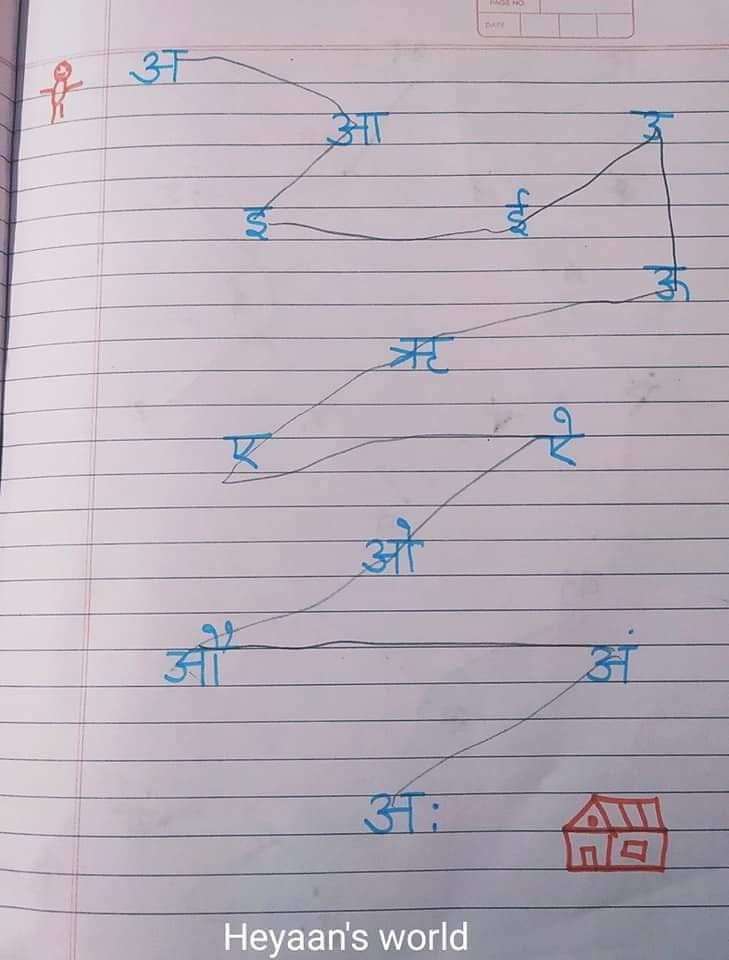 PAGE NO.
DATE
अ
आ
इ
ई
उ
ऊ
ऋ
ए
ऐ
ओ
औ
अं
अः
Heyaan's world